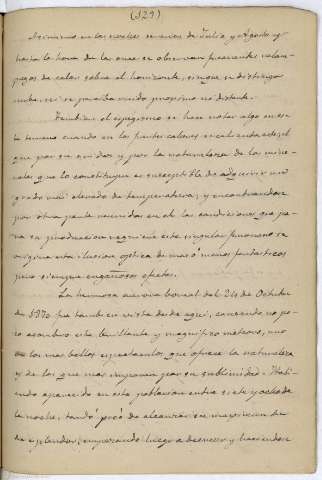 (129)
Asimismo en las noches serenas de Julio y Agosto y
hasta la hora de las once se observan frecuentes relam-
pagos de calor sobre el horizonte, sin que se distinga
nube, ni se perciba ruido proximo ni distante.
Tambien el espegismo se hace notar algo en es-
te terreno cuando en los fuertes calores se calienta este, el
que por su aridez y por la naturaleza de la mine-
rales que lo constituye es susceptible de adquirir un
grado mas elevado de temperatura; y encontrandose
por otra parte reunidas en el las condiciones que pa-
ra su produccion requiere este singular fenomeno se
origina esta ilusion optica de mas ó menos fantasticos
pero siempre engañosos efectos.
La hermosa aurora boreal del 24 de Octubre
de 1870 fue tambien vista desde aqui, causando no po-
co asombro este brillante y magnifico meteoro, uno
de los mas bellos espectaculos que ofrece la naturaleza
y de los que mas imponen por su sublimidad. Habi-
endo aparecido en esta poblacion entre siete y ocho de
la noche, tardó poco de alcanzar su maximum de
de esplendor, empezando luego a decrecer y haciendose